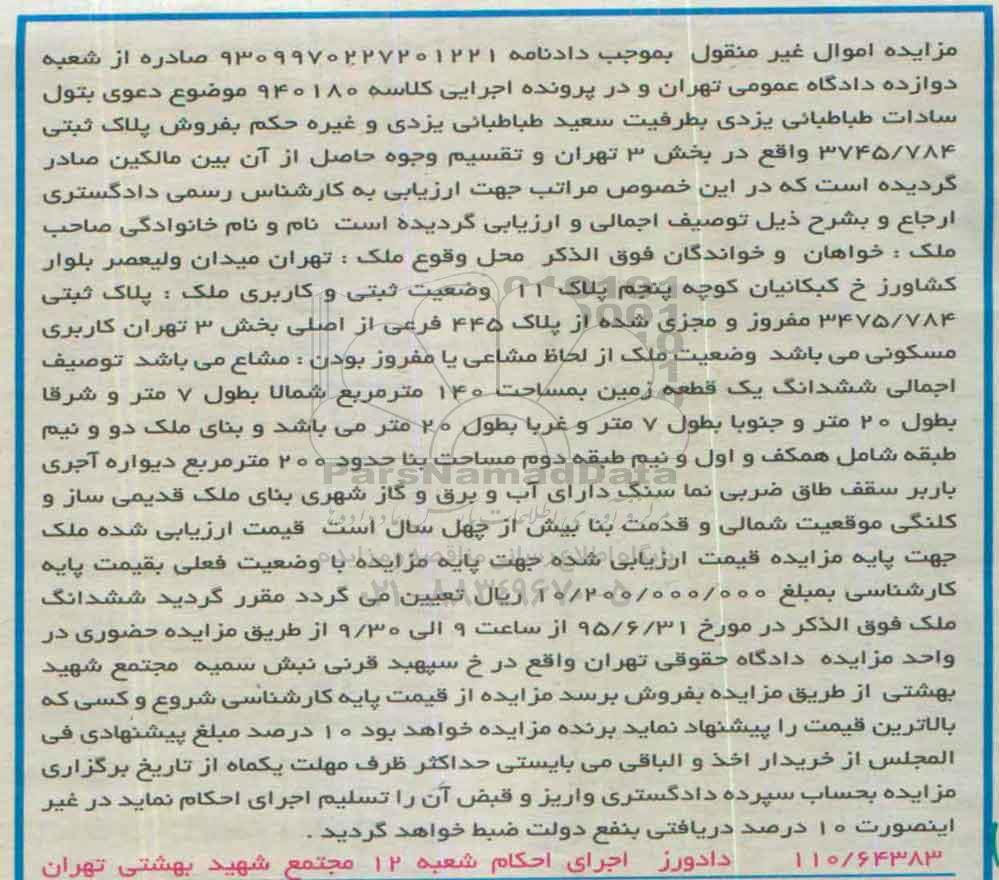 مزایده اموال غیر منقول بموجب دادنامه ۹۳۰۹۹۷۰۲۲۷۲۰۱۲۲۱ صادره از شعبه
دوازده دادگاه عمومی تهران و در پرونده اجرایی کلاسه ۹۴۰۱۸۰ موضوع دعوی بتول
سادات طباطبائی یزدی بطرفیت سعید طباطبائی یزدی و غیره حکم بفروش پلاک ثبتی
۳۷۴۵/۷۸۴ واقع در بخش ۳ تهران و تقسیم وجوه حاصل از آن بین مالکین صادر
گردیده است که در این خصوص مراتب جهت ارزیابی به کارشناس رسمی دادگستری
ارجاع و بشرح ذیل توصیف اجمالی و ارزیابی گردیده است نام و نام خانوادگی صاحب
ملک : خواهان و خواندگان فوق الذکر محل وقوع ملک : تهران میدان ولیعصر بلوار
کشاورز خ کبکانیان کوچه پنجم پلاک ۱۱ وضعیت ثبتی و کاربری ملک : پلاک ثبتی
۳۴۷۵/۷۸۴ مفروز و مجزی شده از پلاک ۴۴۵ فرعی از اصلی بخش ۳ تهران کاربری
مسکونی می باشد وضعیت ملک از لحاظ مشاعی یا مفروز بودن : مشاع می باشد توصیف
اجمالی ششدانگ یک قطعه زمین بمساحت ۱۴۰ مترمربع شمالا بطول ۷ متر و شرقا
بطول ۲۰ متر و جنوبا بطول ۷ متر و غربا بطول ۲۰ متر می باشد و بنای ملک دو و نیم
طبقه شامل همکف و اول و نیم طبقه دوم مساحت بنا حدود ۲۰۰ مترمربع دیواره آجری
ParsNamadData
باربر سقف طاق ضربی نما سنگ دارای آب و برق و گاز شهری بنای ملک قدیمی ساز و
کلنگی موقعیت شمالی و قدمت بنا بیش از چهل سال است قیمت ارزیابی شده ملک
جهت پایه مزایده قیمت ارزیابی شده جهت پایه مزایده با وضعیت فعلی بقیمت پایه
کارشناسی بمبلغ ۱۰/۲۰۰/۰۰۰/۰۰۰ ریال تعیین می گردد مقرر گردید ششدانگ
ملک فوق الذکر در مورخ ۹۵/۶/۳۱ از ساعت ۹ الی ۹/۳۰ از طریق مزایده حضوری در
واحد مزایده دادگاه حقوقی تهران واقع در خ سپهبد قرنی نبش سمیه مجتمع شهید
بهشتی از طریق مزایده بفروش برسد مزایده از قیمت پایه کارشناسی شروع و کسی که
بالاترین قیمت را پیشنهاد نماید برنده مزایده خواهد بود ۱۰ درصد مبلغ پیشنهادی فی
المجلس از خریدار اخذ و الباقی می بایستی حداکثر ظرف مهلت یکماه از تاریخ برگزاری
مزایده بحساب سپرده دادگستری واریز و قبض آن را تسلیم اجرای احکام نماید در غیر
اینصورت ۱۰ درصد دریافتی بنفع دولت ضبط خواهد گردید .
۱۱۰/۶۴۳۸۳ دادورز اجرای احکام شعبه ۱۲ مجتمع شهید بهشتی تهران